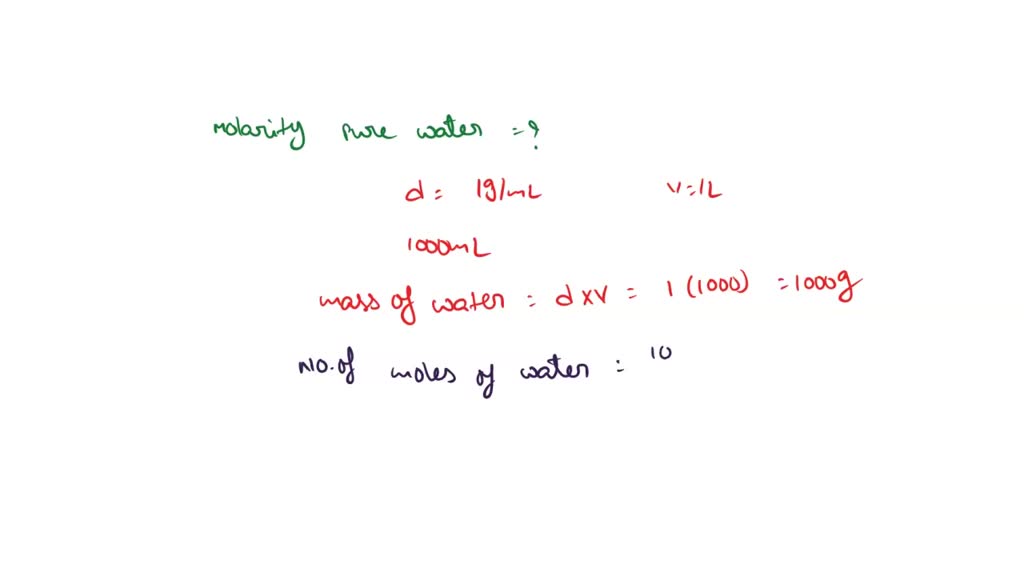 Molarity pure water = ?
d = 1g/mL V=1L
1000mL
mass of water = d x v = 1 (1000) = 1000g
No. of moles of water = 10